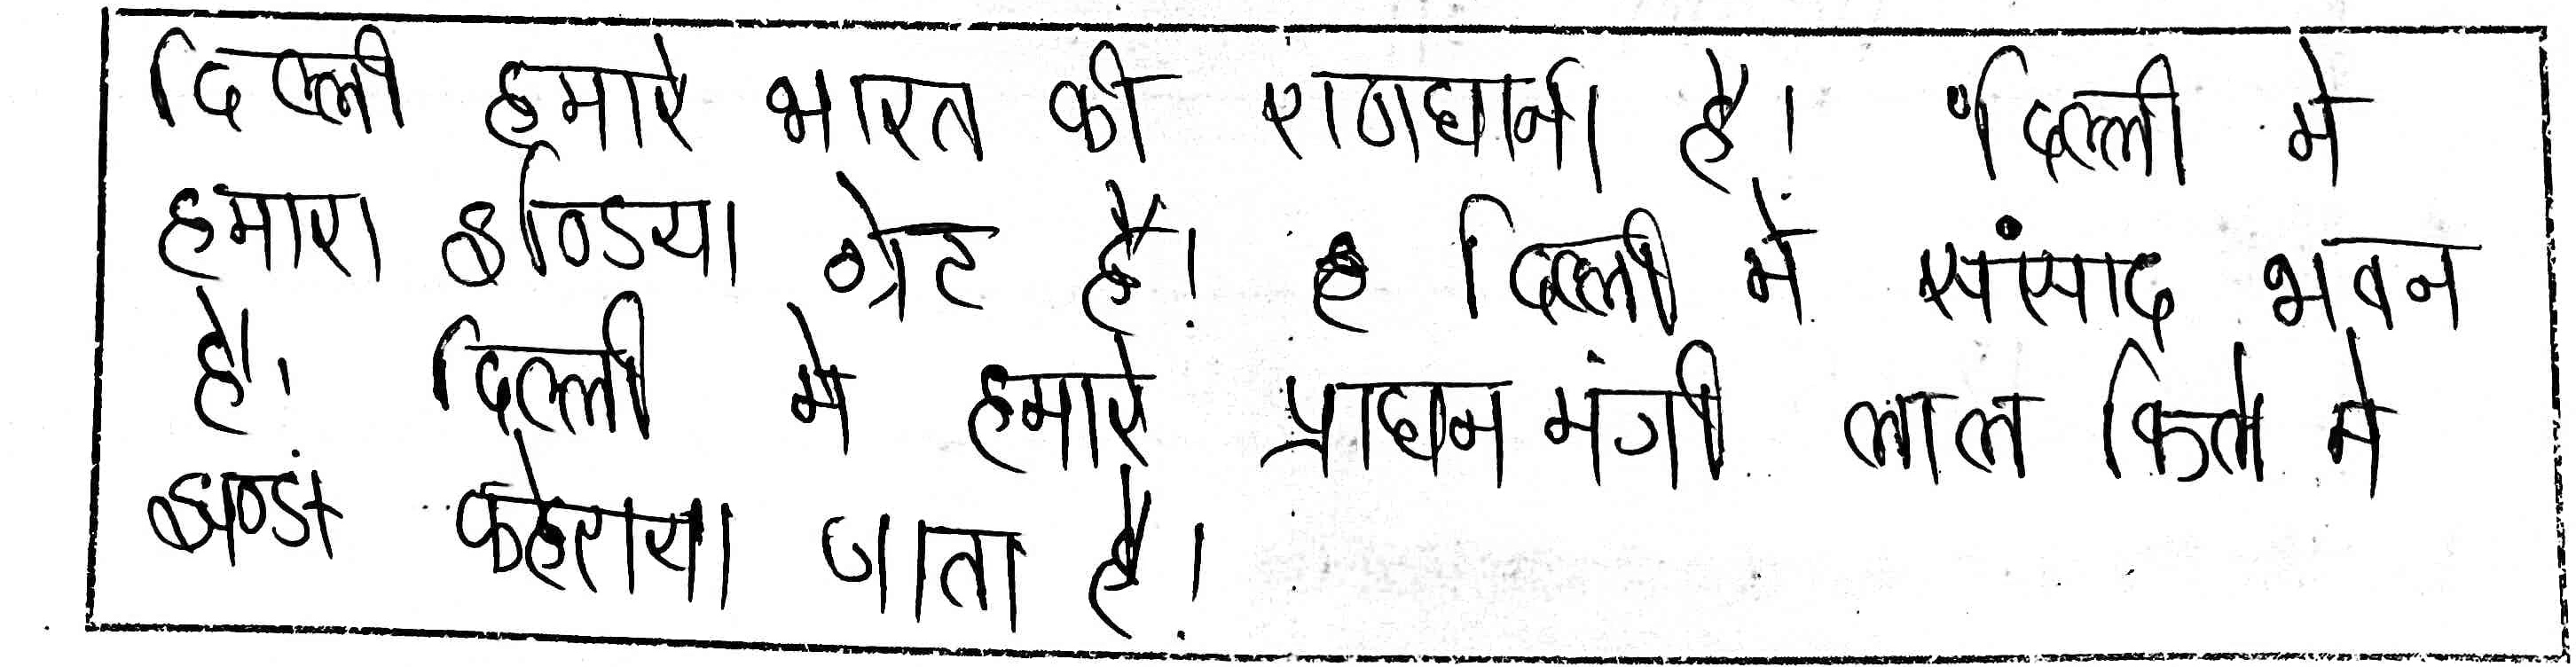 दिल्ली हमारे भारत की राजधानी है। दिल्ली मे
हमारा इण्डिया ग्रेट है। दिल्ली मे संसाद भवन
है। दिल्ली मे हमारे प्राधन मंत्री लाल किले मे
झण्डा फहेराया जाता है।